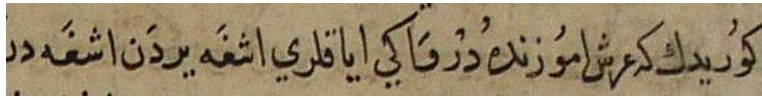 كوُريدك كه عرش اموُزنده دُرْ وَاكي اياقلري اشغَه يردَن اشغَه در